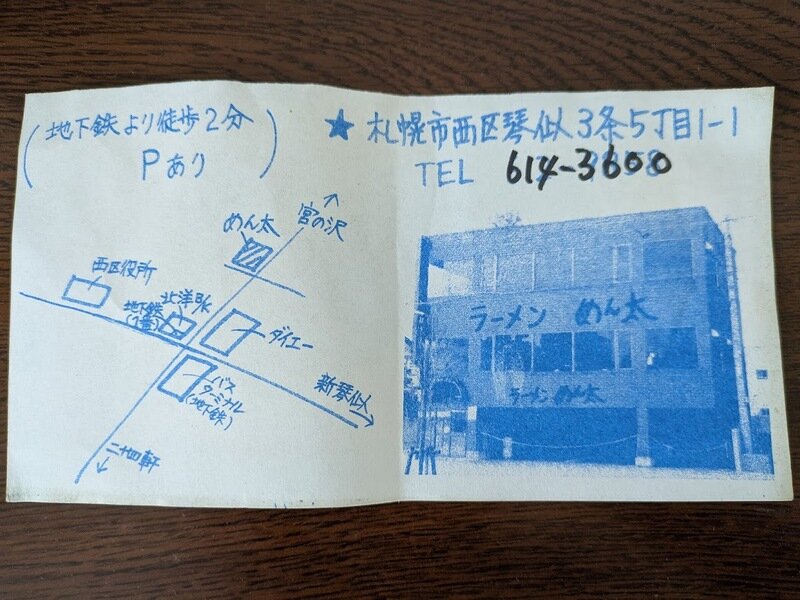 (地下鉄より徒歩2分
Pあり)
宮の沢
めん太
西区役所
北洋BK
地下鉄
(1番)
ダイエー
バス
ターミナル
(地下鉄)
新琴似
二十四軒
★札幌市西区琴似3条5丁目1-1
TEL 614-3600
ラーメン めん太
ラーメン めん太